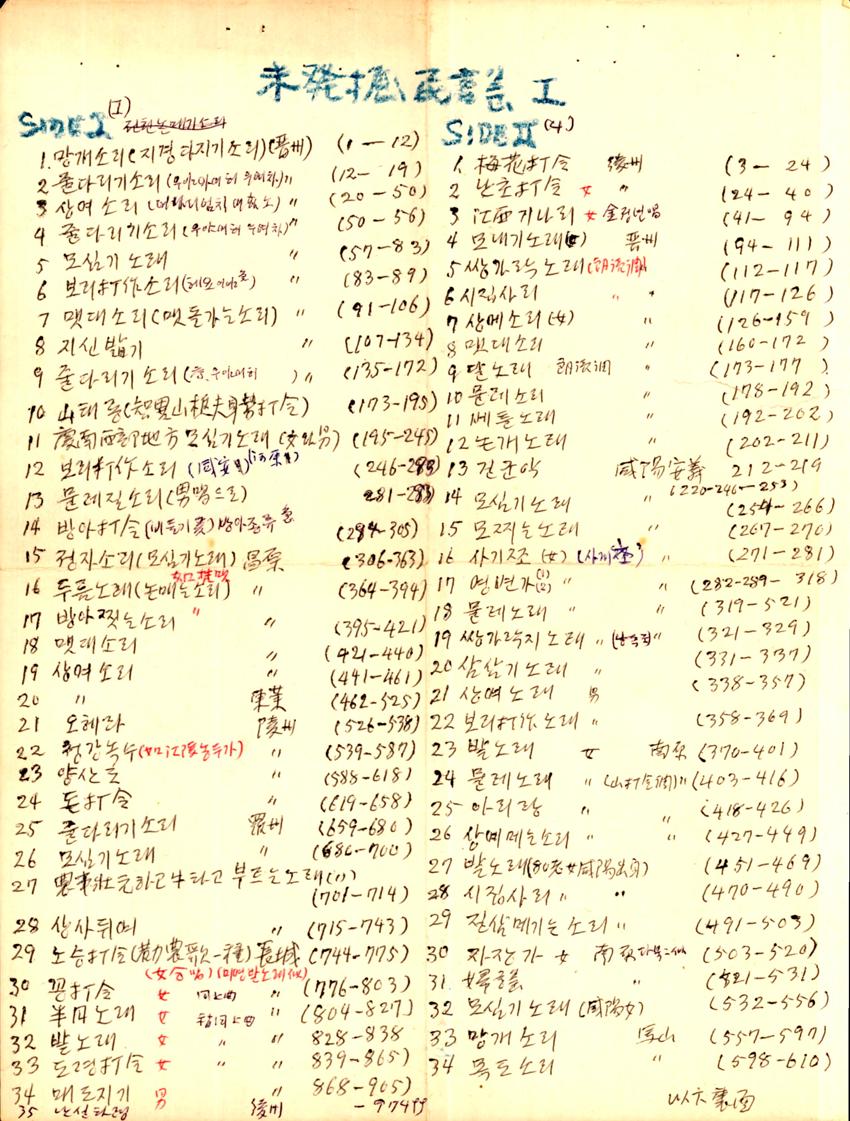 未發掘民謠 I
SIDE I (1)
1. 망개소리(지경다지기소리)(晋州) (1 — 12)
2 줄다리기소리 〃 (12 — 19)
3 상여소리 〃 (20 — 50)
4 줄다리기소리 〃 (50 — 56)
5 모심기노래 〃 (57 — 83)
6 보리打作소리 〃 (83 — 89)
7 맷대소리(맷돌가는소리) 〃 (91 — 106)
8 지신밟기 〃 (107 — 134)
9 줄다리기소리 〃 (135 — 172)
10 山태종(智異山樵夫身勢打令) (173 — 195)
11 慶南西部地方 모심기노래 (女와男) (195 — 245)
12 보리打作소리 (咸安) (246 — 283)
13 물레질소리(男唱으로) 281 — 283)
14 방아打令 (284 — 305)
15 정자소리(모심기노래) 昌原 (306 — 363)
16 두름노래(논매는소리) 〃 (364 — 394)
17 방아찧는소리 〃 (395 — 421)
18 맷대소리 〃 (421 — 440)
19 상여소리 〃 (441 — 461)
20 〃 東萊 (462 — 525)
21 오헤라 陵州 (526 — 538)
22 청강녹수 〃 (539 — 587)
23 양산도 〃 (588 — 618)
24 돈打令 〃 (619 — 658)
25 줄다리기소리 羅州 (659 — 680)
26 모심기노래 〃 (680 — 700)
27 農事壯元하고 牛타고 부르는노래(1) (701 — 714)
28 상사뒤여 〃 (715 — 743)
29 노승打令(勸農歌一種) 長城 (744 — 775)
(女合唱)
30 꼰打令 女 同上曲 〃 (776 — 803)
31 半月노래 女 〃 (804 — 827)
32 밭노래 女 〃 〃 828 — 838
33 도령打令 女 〃 〃 839 — 865)
34 매도지기 男 〃 868 — 905)
35 陵州 — 974
SIDE II (4)
1. 梅花打令 陵州 (3 — 24)
2 난초打令 女 〃 (24 — 40)
3 江西기나리 女 (41 — 94)
4 모내기노래(女) 晋州 (94 — 111)
5 쌍가락노래 (112 — 117)
6 시집사리 〃 〃 (117 — 126)
7 상여소리(女) 〃 (126 — 159)
8 맷대소리 〃 (160 — 172)
9 달노래 〃 (173 — 177)
10 물레소리 〃 (178 — 192)
11 베틀노래 〃 (192 — 202)
12 논개노래 〃 (202 — 211)
13 길군악 咸陽安義 212 — 219
14 모심기노래 〃 (220-246-253) (254 — 266)
15 모찌는노래 〃 (267 — 270)
16 사기조 (女) 〃 (271 — 281)
17 영변가 (1)(2) 〃 〃 (282-289-318)
18 물레노래 〃 〃 (319 — 521)
19 쌍가락지노래 〃 〃 (321 — 329)
20 삼삼기노래 〃 (331 — 337)
21 상여노래 男 (338 — 357)
22 보리打作노래 〃 (358 — 369)
23 밭노래 女 南原 (370 — 401)
24 물레노래 〃 (山打令調) 〃 (403 — 416)
25 아리랑 〃 〃 (418 — 426)
26 상예메는소리 〃 〃 (427 — 449)
27 밭노래(80老女咸陽出身) (451 — 469)
28 시집사리 〃 〃 (470 — 490)
29 길삼메기는소리 〃 (491 — 503)
30 자장가 女 南原 (503 — 520)
31. 〃 (821 — 531)
32 모심기노래 (咸陽女) (532 — 556)
33 망개소리 馬山 (557 — 597)
34 목도소리 〃 (598 — 610)
以下裏面